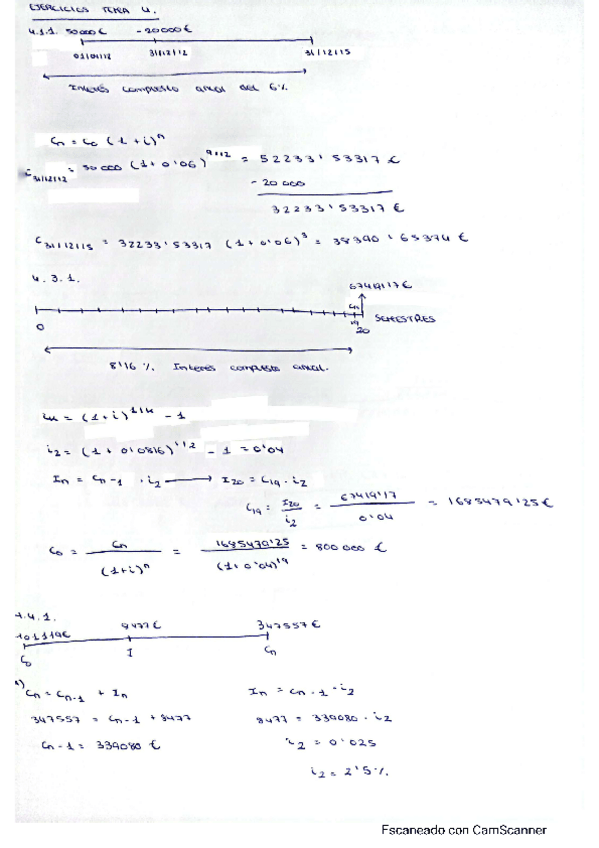 EJERCICIOS TEMA 4.
4.1.1. 50000€ -20000€
01/01/12 31/12/12 31/12/15
Interés compuesto anual del 6%
Cn = Co (1+i)^n
C31/12/12 = 50000 (1+0'06) = 52233'53317 €
- 20000
32233'53317 €
C31/12/15 = 32233'53317 (1+0'06)^3 = 38390'65374 €
4.3.1.
67419'17€
Cn
0 19 20 SEMESTRES
8'16 %. Interés compuesto anual.
= (1+i) - 1
i2 = (1+0'0816)^1/2 - 1 = 0'04
In = Cn-1 · i2 → I20 = C19 · i2
C19 = I20/i2 = 67419'17/0'04 = 1685479'25€
Co = Cn/(1+i)^n = 1685479'25/(1+0'04)^19 = 800000 €
4.4.1.
8477€ 347557€
Co 1 Cn
Cn = Cn-1 + In In = Cn-1 · i2
347557 = Cn-1 + 8477 8477 = 339080 · i2
Cn-1 = 339080 € i2 = 0'025
i2 = 2'5%.
Escaneado con CamScanner